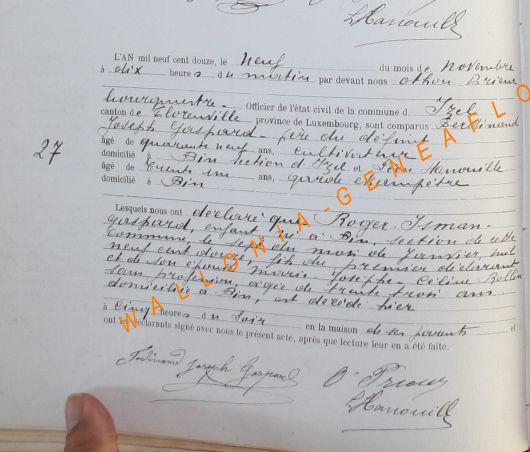 L Hanouill
L'AN mil neuf cent douze, le neuf du mois de novembre
à dix heures du matin par devant nous Othon Brieux
bourgmestre. Officier de l'état civil de la commune d Izel
canton de Florenville province de Luxembourg, sont comparus Ferdinand
Joseph Gaspard père du défunt
27
âgé de quarante neuf ans, cultivateur
domicilié à Bin section d'Izel et Hanouille
âgé de trente un ans, garde champêtre
domicilié à Bin
Lesquels nous ont déclaré que Roger Isman
gaspard, enfant né à Bin, section de cette
Commune, le sept du mois de Janvier, mil
neuf cent douze, fils du premier déclarant
et de son épouse Marie Joseph Céline
sans profession, âgée de trente trois ans
domiciliée à Bin, est décédé hier
à cinq heures du soir en la maison de ses parents et
ont déclarants signé avec nous le présent acte, après que lecture leur en a été faite.
Ferdinand Joseph Gaspard
L Hanouill
WALLONIA-GENEAFLO